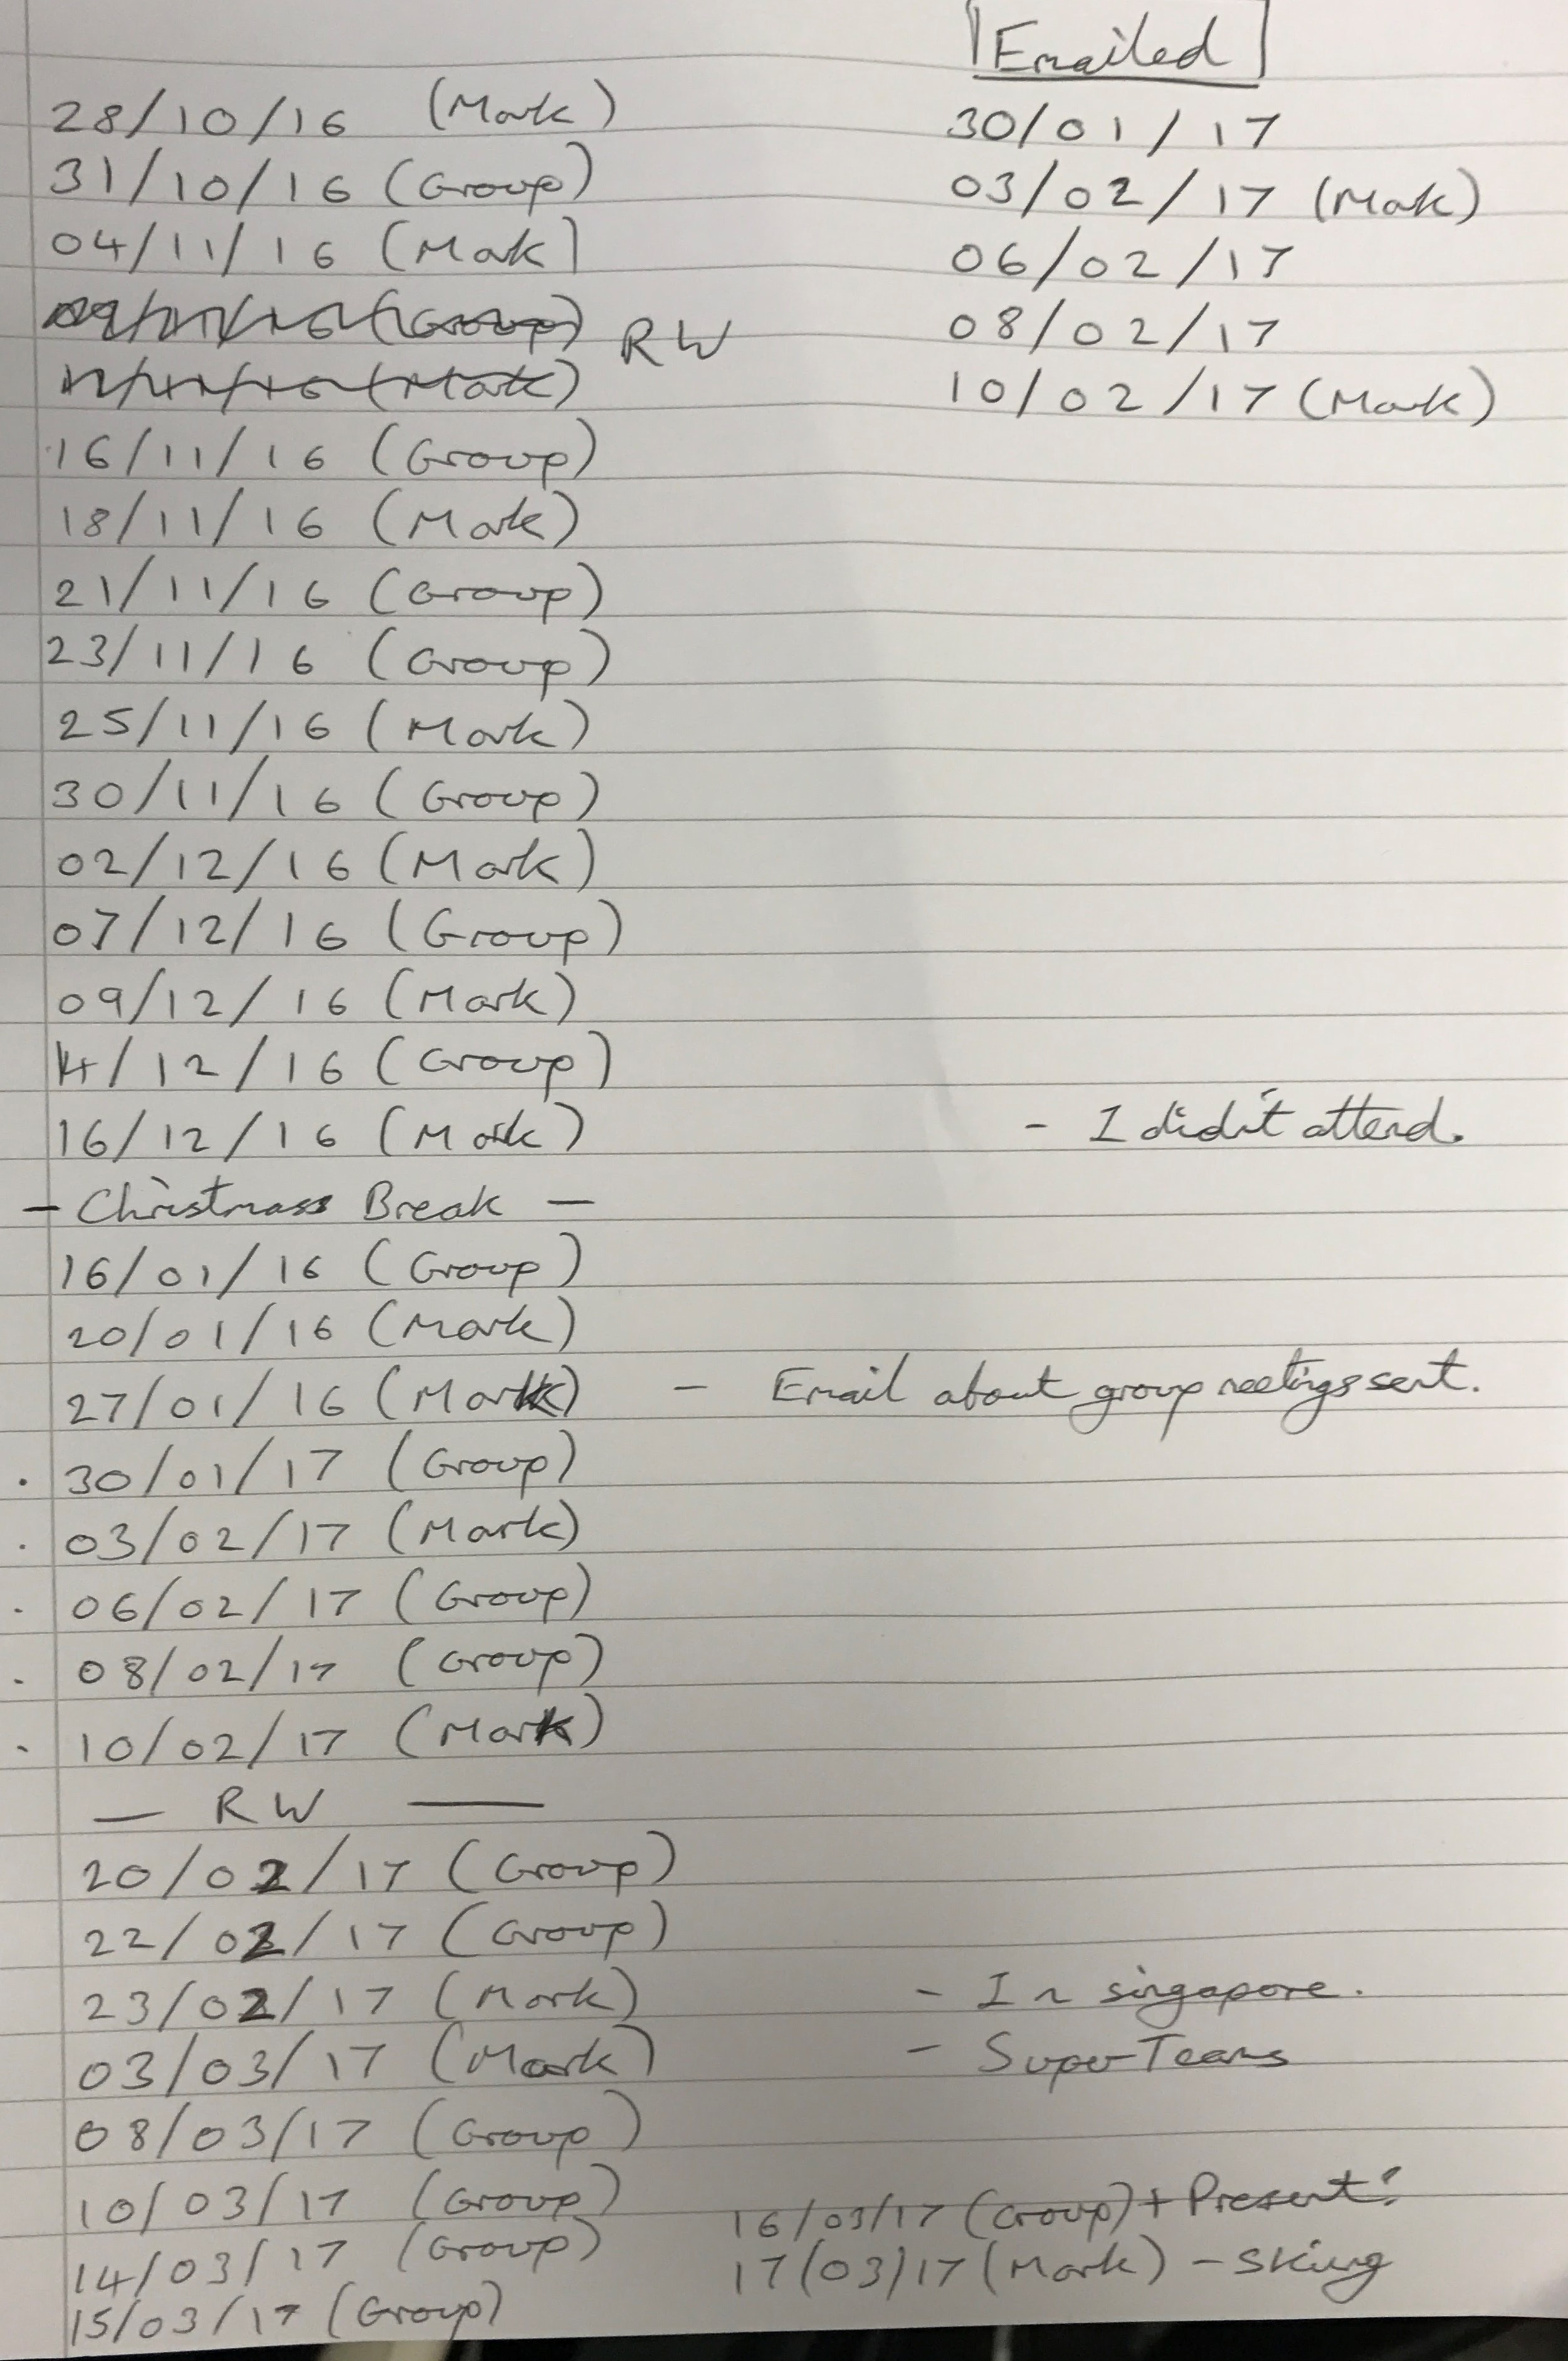 Emailed
28/10/16 (Mark)
31/10/16 (Group)
04/11/16 (Mark)
09/11/16 (Group) RW
11/11/16 (Mark)
16/11/16 (Group)
18/11/16 (Mark)
21/11/16 (Group)
23/11/16 (Group)
25/11/16 (Mark)
30/11/16 (Group)
02/12/16 (Mark)
07/12/16 (Group)
09/12/16 (Mark)
14/12/16 (Group)
16/12/16 (Mark) - I didn't attend.
- Christmas Break -
16/01/16 (Group)
20/01/16 (Mark)
27/01/16 (Mark) - Email about group meetings sent.
· 30/01/17 (Group)
· 03/02/17 (Mark)
· 06/02/17 (Group)
· 08/02/17 (Group)
· 10/02/17 (Mark)
— RW —
20/02/17 (Group)
22/02/17 (Group)
23/02/17 (Mark) - In singapore.
03/03/17 (Mark) - SuperTeams
08/03/17 (Group)
10/03/17 (Group)
14/03/17 (Group)
15/03/17 (Group)
30/01/17
03/02/17 (Mark)
06/02/17
08/02/17
10/02/17 (Mark)
16/03/17 (Group) + Present!
17/03/17 (Mark) - Skiing